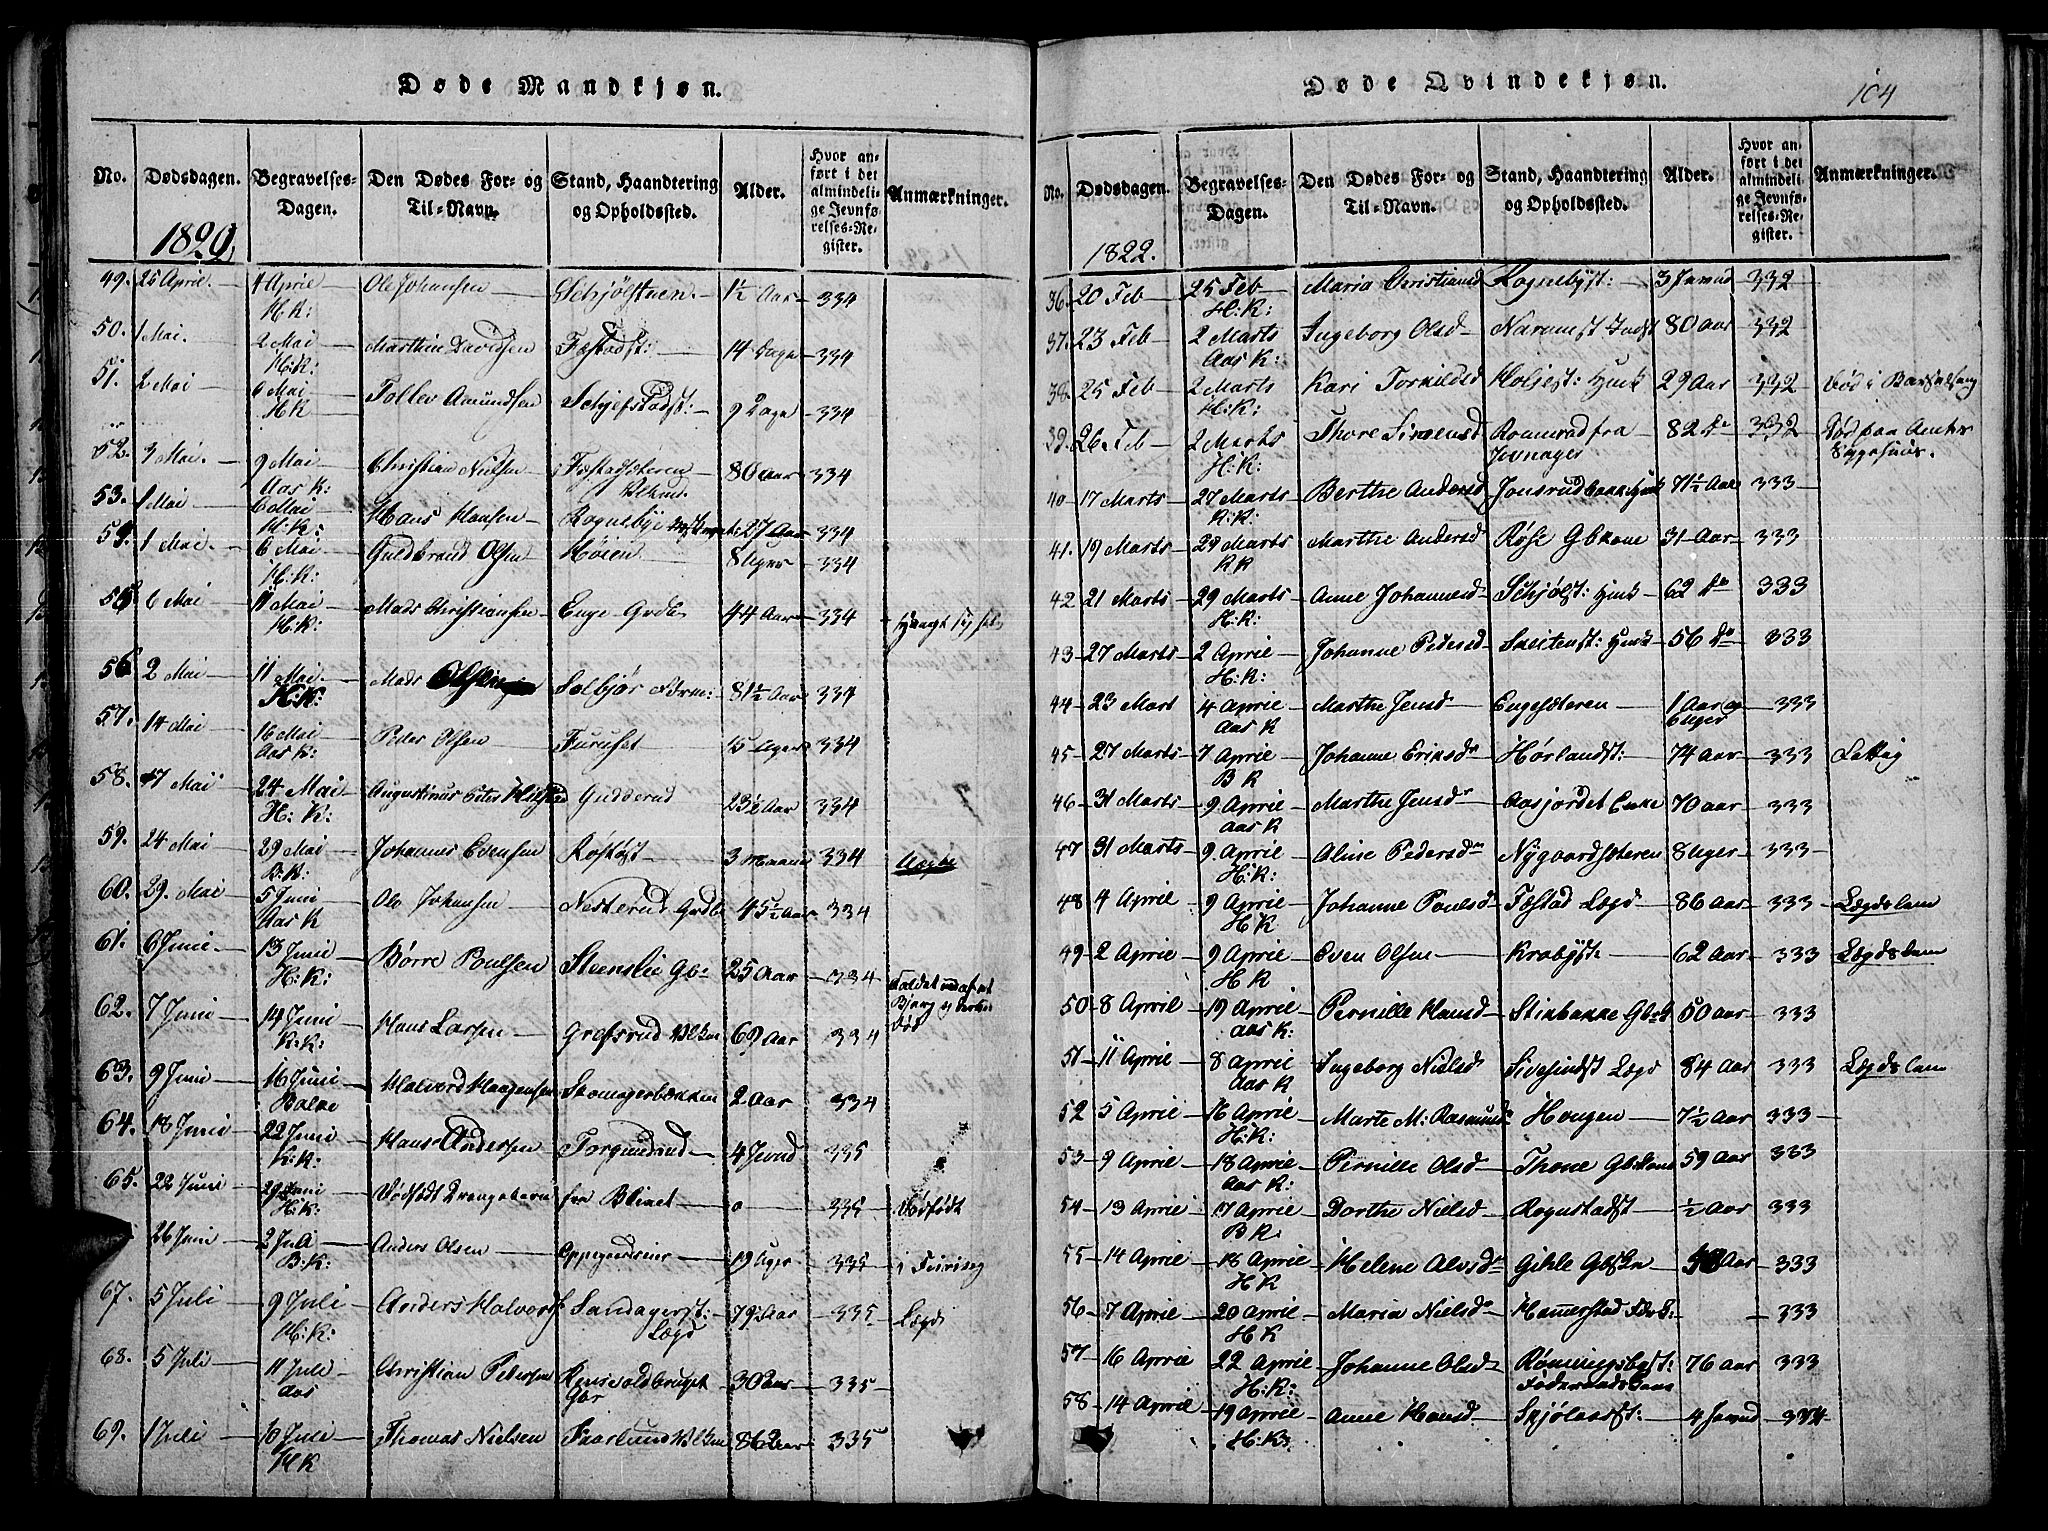 Døde Mandkjøn.
No. Dødsdagen. Begravelses-Dagen. Den Dødes For- og Til-Navn. Stand, Haandtering og Opholdssted. Alder. Hvor anført i det almindelige Jevnførelses-Register. Anmærkninger.
49. 25 April. 4 Aprie H.K: Ole Johansen Schjølstuen. 1½ Aar 334
50. 1 Mai. 2 Mai H.K: Marthin Davidsen Fæstadst: 14 Dage 334
51. 2 Mai 6 Mai HK Tollev Amundsen Schjefstadst: 9 Dage 334
52. 3 Mai. 9 Mai Aas K: Christian Nielsen 80 Aar 334
53. 1 Mai 6 Mai H:K: Hans Hansen Rognebye 27 Aar 334
54. 1 Mai. 6 Mai H:K: Guldbrand Olsen Høien 8 Uger 334
55 6 Mai 11 Mai H:K: Mads Christiansen Enge Grdb 44 Aar 334
56 2 Mai 11 Mai H:K: Mads Solbjør 81½ Aar 334
57. 14 Mai 16 Mai Aas K: Peder Olsen Furuset 15 Uger 334
58. 17 Mai 24 Mai H:K: Augustinus Gudderud 23½ Aar 334
59. 24 Mai 29 Mai B:K: Johannes Evensen Røstøst 3 Maan 334
60. 29. Mai 5 Juni Aas K Ole Johansen Nesterud Grdb 45½ Aar 334
61. 6 Juni. 13 Juni H:K: Børre Poulsen Steenslie Gb 25 Aar 334
62. 7 Juni 14 Juni K:K: Hans Larsen Grefsrud 69 Aar 334 død
63. 9 Juni 16 Juni Balke Halvord Haagensen Skomagerbakken 2 Aar 334
64. 18 Juni 22 Juni K:K: Hans Andersen Torgundrud 4 Jevnd 335
65. 22 Juni 29 Juni H:K: Dødfødt Drengebarn fra Blinet 0 335 Dødfødt
26 Juni 2 Juli B:K: Anders Olsen 19 Uger 335 i Feiring
67. 5 Juli 9 Juli H:K: Anders Halvors Sandagerst: Lægd 79 Aar 335 Lægd
68. 5 Juli 11 Juli Aas Christian Pedersen 30 Aar 335
69. 1 Juli 10 Juli HK Thomas Nielsen Faarlund 86 Aar 335
Døde Qvindekjøn. 104
No. Dødsdagen. Begravelses-Dagen. Den Dødes For- og Til-Navn. Stand, Haandtering og Opholdssted. Alder. Hvor anført i det almindelige Jevnførelses-Register. Anmærkninger.
1822.
36. 20 Feb 25 Feb H:K: Maria Christiansd Rognebyst: 3 Jevnd 332
37. 23 Feb 2 Marts Aas K: Ingeborg Olsd Narumst 80 Aar 332
38. 25 Feb 2 Marts H:K: Kari Torkildsd Holjest: 29 Aar 332 Død i Barselseng
39. 26. Feb 2 Marts H:K: Thore Simensd fra Jevnager 82 do 332 Død paa Amtes Sygehuus.
40 17 Marts 27 Marts K:K: Berthe Andersd Jonsrudbakke 71½ Aar 333
41. 19 Marts 29 Marts KK Marthe Andersd Røise Gbkone 31 Aar 333
42 21 Marts 29 Marts H:K: Anne Johannesd Schjølst: 62 do 333
43 27 Marts 2 Aprie H:K: Johanne Pedersd 56 do 333
44 23 Mart 4 Aprie Aas K Marthe Jensd Engesæteren 1 Aar og Uger 333
45 27 Marts 7 Aprie BK Johanne Eriksd Hørlandst: 74 Aar 333 Fattig
46 31 Marts 9 Aprie Aas K Marthe Jensd Aasjordet Enke 70 Aar 333
47 31 Marts 9. Aprie H:K: Oline Pedersd Nygaardsæteren 8 Uger 333
48 4 April 9 Aprie HK Johanne Poulsd Fæstad Lægd 86 Aar 333 Lægdslem
49 2 Aprie 9 Aprie HK Even Olsen Krabyst: 62 Aar 333 Lægdslem
50 8 April 19 Aprie Aas K: Pernille Hansd Stikbakke 50 Aar 333
51 11 Aprie 8 Aprie Aas K Ingeborg Nielsd Sivesindst Lægd 84 Aar 333 Lægdslem
52 5 Aprie 16 Aprie H:K: Marte M: Rasmusd Hougen 7½ Aar 333
53 9 Aprie 18 Aprie Aas K: Pernille Olsd Thone 59 Aar 333
54 13 Aprie 17 Aprie BK Dorthe Nielsd Rognstadst ½ Aar 333
55 14 Aprie 18 Aprie HK Helene Alvsd Gihle Aar 333
56 7 Aprie 20 Aprie HK Maria Nielsd Hammerstad 333
57 16 Aprie 22 Aprie H:K: Johanne Olsd Rønningsbyst: 76 Aar 333
58 14 Aprie 19 Aprie H:K: Anne Hansd Skjølaast: 4 Jevnd 334